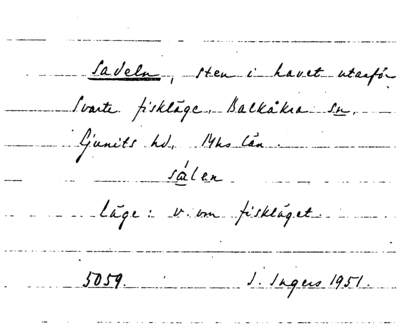 Sadeln, sten i havet utanför
Svarte fiskläge, Balkåkra sn,
Ljunits hd, Mhs län.
sálen
läge: v. om fiskläget.
5059. I. Ingers 1951.